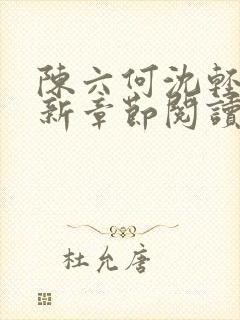 陳六何沈輕
新章節閱讀
杜允唐